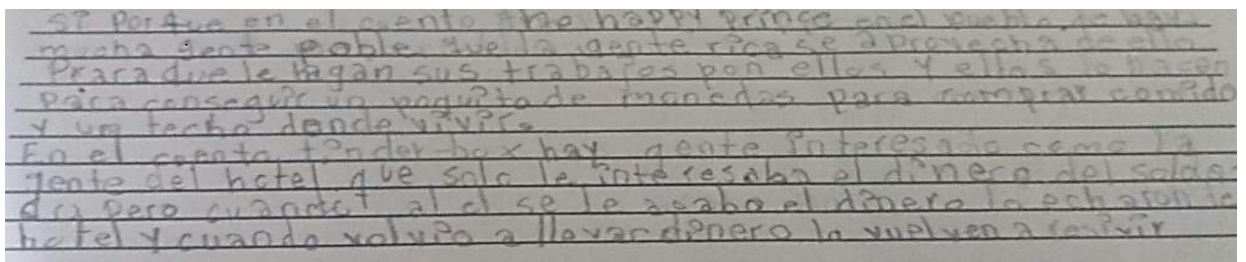 Si porque en el cuento the happy prince en el pueblo hay
mucha gente poble que la gente rica se aprovecha de ello
Praraque le hagan sus trabajos pon ellos y ellos lo hacen
para conseguir un poquito de monedas para comprar comido
y un techo donde vivir.
En el coento tinder-box hay gente interesado como la
gente del hotel que solo le interesaba el dinero del solda-
do pero cuando al el se le acabo el dinero lo echaron
hotel y cuando volvio a llevar dinero lo vuelven a